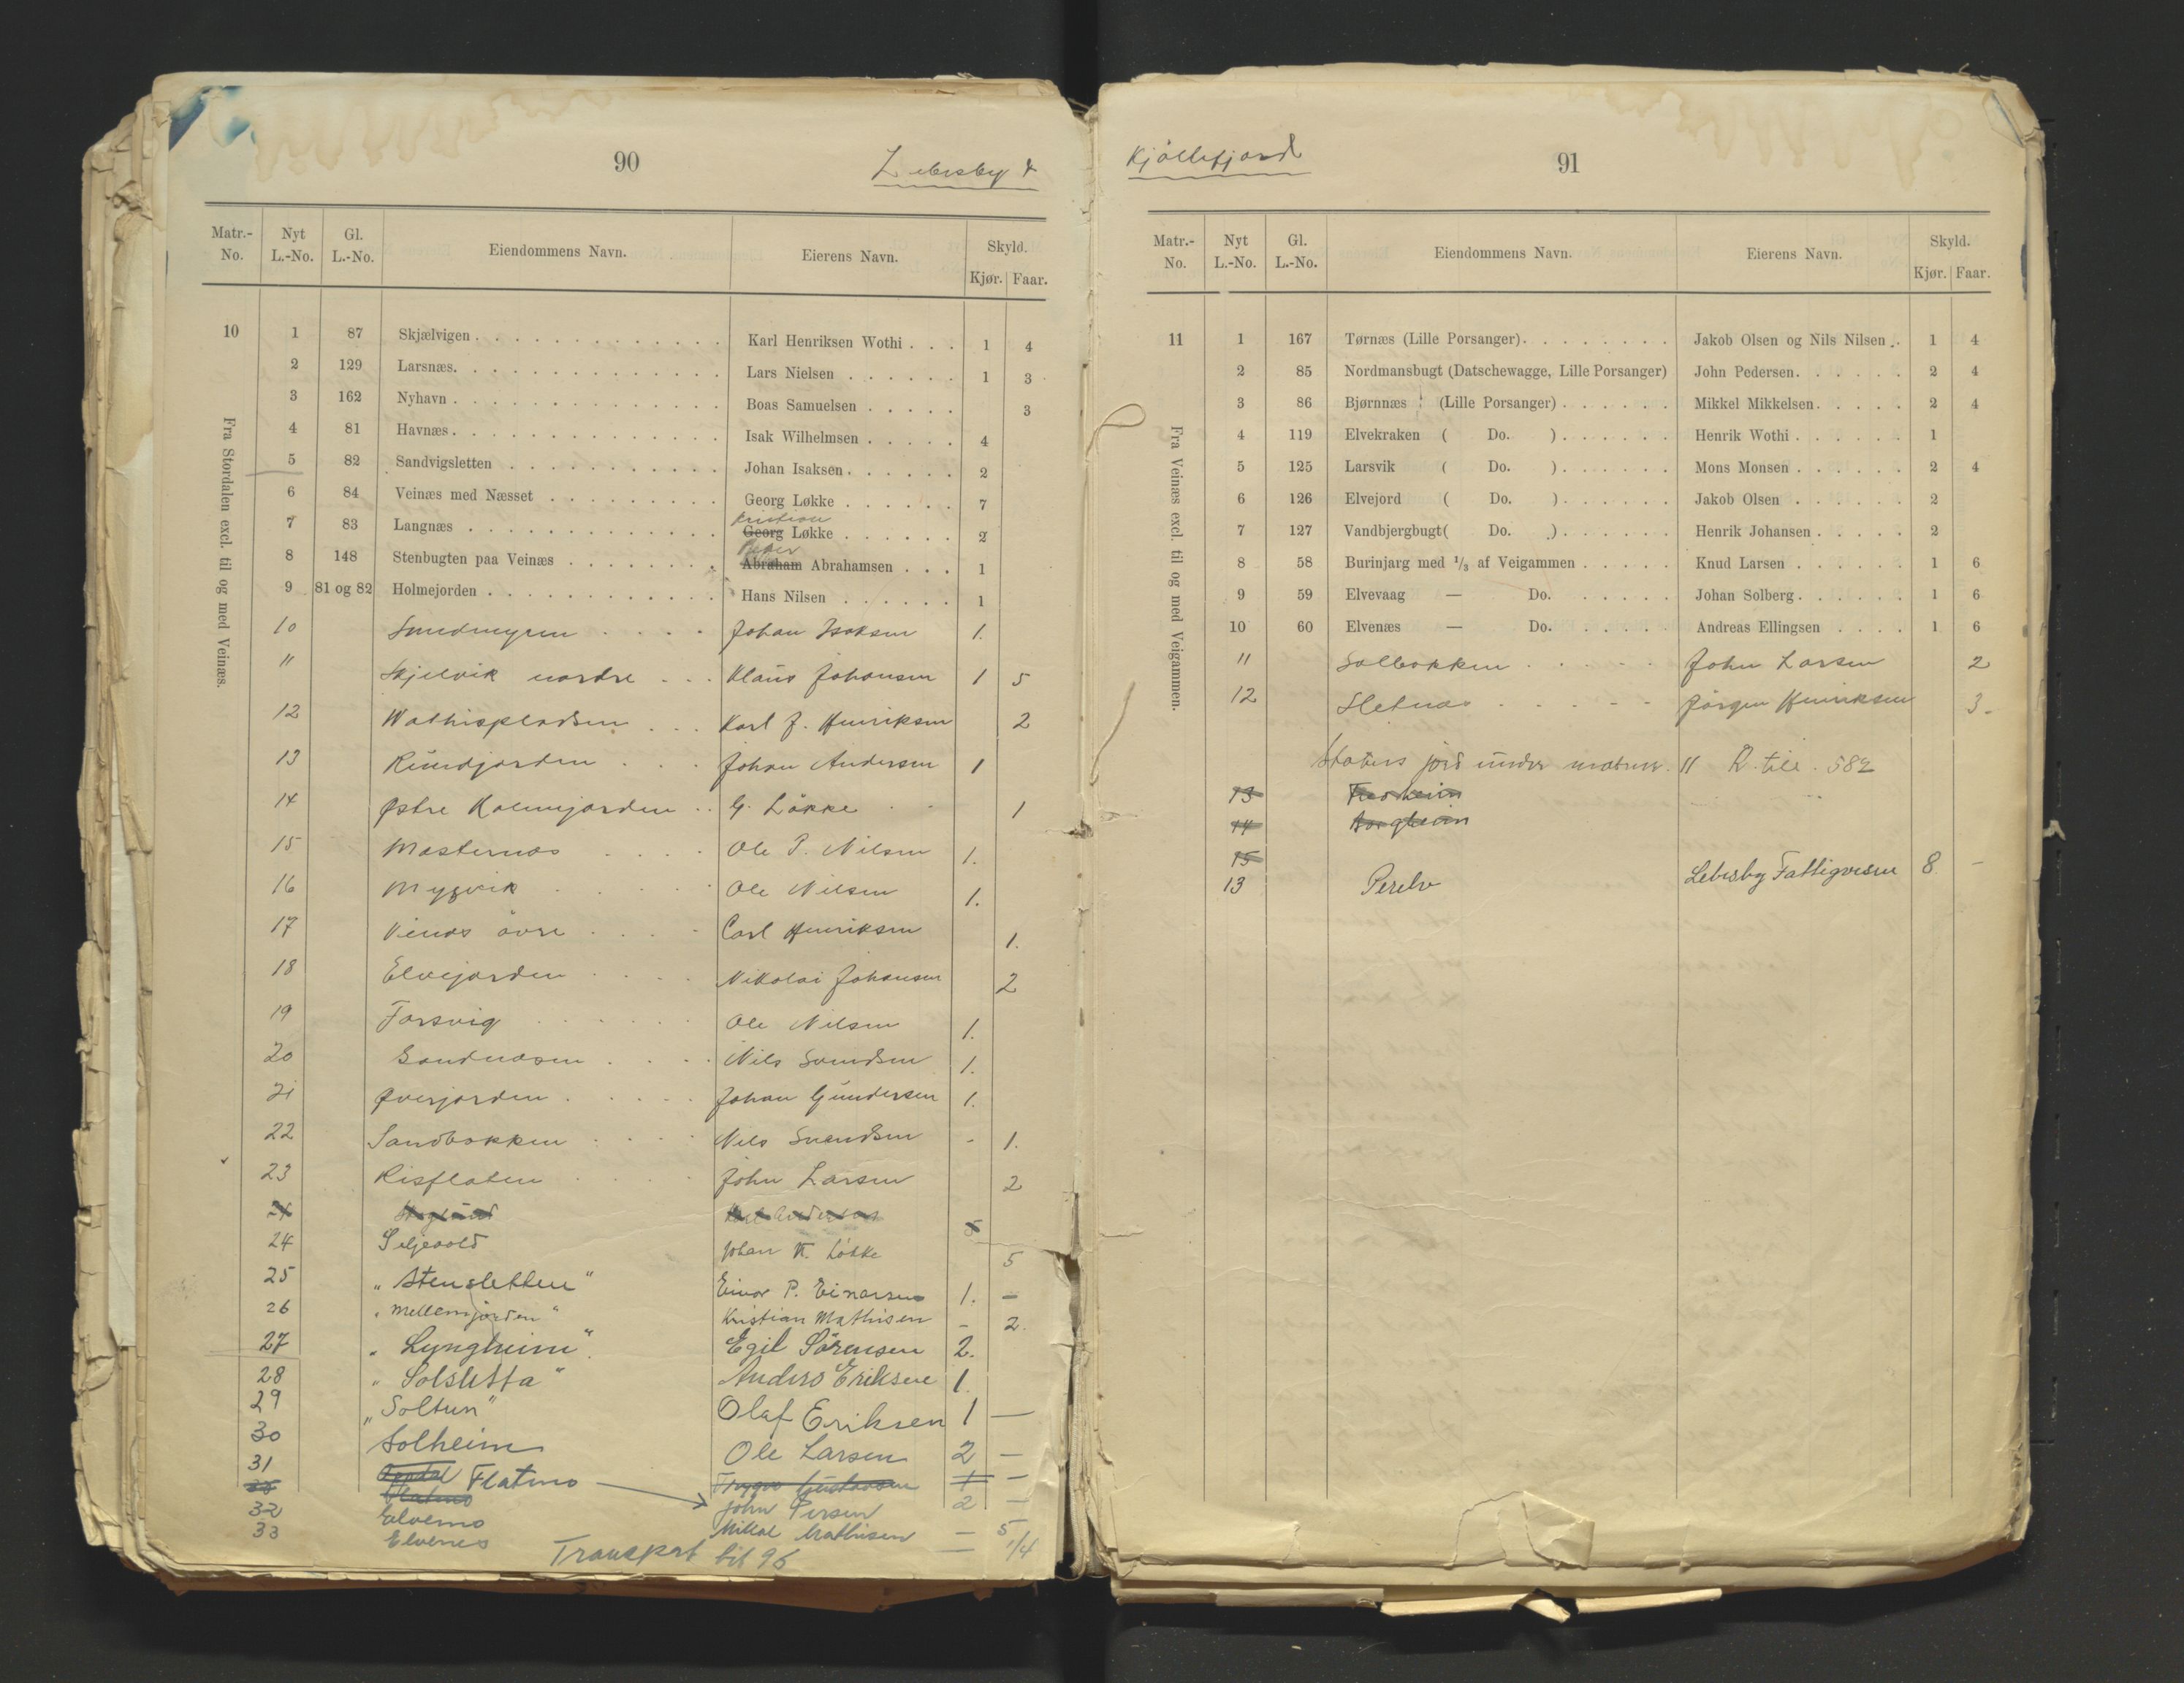 90
Lebesby &
Matr.-No. Nyt L.-No. Gl. L.-No. Eiendommens Navn. Eierens Navn. Skyld. Kjør. Faar.
Fra Stordalen excl. til og med Veinæs.
10 1 87 Skjælvigen. . . . Karl Henriksen Wothi . . . 1 4
2 129 Larsnæs. . . . Lars Nielsen . . . 1 3
3 162 Nyhavn . . . Boas Samuelsen . . . 3
4 81 Havnæs. . . . Isak Wilhelmsen . . . 4
5 82 Sandvigsletten . . . Johan Isaksen. . . . 2
6 84 Veinæs med Næsset . . . Georg Løkke . . . 7
Kristian
7 83 Langnæs . . . Georg Løkke . . . 2
Peder
8 148 Stenbugten paa Veinæs . . . Abraham Abrahamsen . . . 1
9 81 og 82 Holmejorden . . . Hans Nilsen . . . 1
10 Smedmyren . . . Johan Isaksen 1.
11 Skjelvik nordre . . . Klaus Johansen 1 5
12 Wothispladsen . . . Karl J. Henriksen 2
13 Rundjorden . . . Johan Andersen 1
14 Østre Holmejorden . . G. Løkke 1
15 Masternæs . . . Ole P. Nilsen 1.
16 Mygvik . . . Ole Nilsen 1.
17 Veinæs øvre . . . Carl Henriksen 1.
18 Elvejorden . . . Nikolai Johansen 2
19 Forsvig . . . Ole Nilsen 1.
20 Sandnæsen . . . Nils Svendsen 1.
21 Øverjorden . . . Johan Gundersen 1.
22 Sandbakken . . . Nils Svendsen - 1.
23 Risflaten . . . John Larsen 2
24
24 Seljevold Johan K. Løkke 5
25 "Stensletten" Einar P. Einarsen 1. -
26 "Mellemjorden" Kristian Mathisen - 2.
27 "Lyngheim". Egil Sørensen 2.
28 "Solsletta" Anders Eriksen 1.
29 "Soltun" Olaf Eriksen 1 —
30 Solheim Ole Larsen 2 -
31 Flatmo Trygve Gustavsen 1 -
Flatmo John Persen 2 -
32 Elvemo Mikal Mathisen — 5
33 Elvenes — 1/4
Transport til 96
Kjøllefjord
91
Matr.-No. Nyt L.-No. Gl. L.-No. Eiendommens Navn. Eierens Navn. Skyld. Kjør. Faar.
Fra Veinæs excl. til og med Veigammen.
11 1 167 Tørnæs (Lille Porsanger). . . . Jakob Olsen og Nils Nilsen . . 1 4
2 85 Nordmansbugt (Datschewagge, Lille Porsanger) John Pedersen. . . . 2 4
3 86 Bjørnnæs (Lille Porsanger) . . . Mikkel Mikkelsen. . . . 2 4
4 119 Elvekraken ( Do. ) . . . Henrik Wothi . . . 1
5 125 Larsvik ( Do. ) . . . Mons Monsen . . . 2 4
6 126 Elvejord ( Do. ) . . . Jakob Olsen . . . 2
7 127 Vandbjergbugt( Do. ) . . . Henrik Johansen . . . 2
8 58 Burinjarg med 1/3 af Veigammen . . . Knud Larsen . . . 1 6
9 59 Elvevaag — Do. . . . Johan Solberg. . . . 1 6
10 60 Elvenæs — Do. . . . Andreas Ellingsen . . . 1 6
11 Solbakken . . . John Larsen 2
12 Sletnæs . . . Jørgen Henriksen 3 -
Statens jord under matrnr. 11 R. till. 582
13 Fredheim
14 Borgheim
15
13 Perelv Lebesby Fattigvesen 8 -